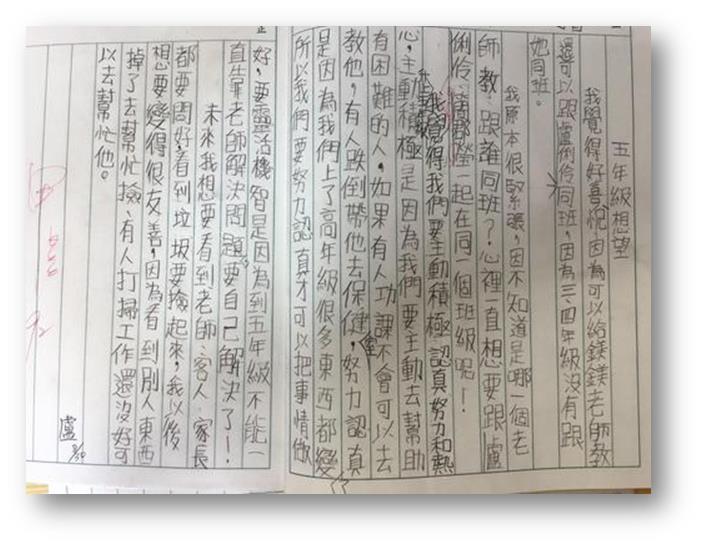 五年級想望
我覺得好喜悅,因為可以給鎂鎂老師教
還可以跟盧俐伶同班,因為三、四年級沒有跟
她同班。
我原本很緊張,因不知道是哪一個老
師教、跟誰同班?心裡一直想要跟盧
俐伶、潘郡瑩一起在同一個班級呢!
我覺得我們要主動積極、認真努力和熱
心,主動積極是因為我們要主動去幫助
有困難的人,如果有人功課不會可以去
教他,有人跌倒帶他去保健室,努力認真
是因為我們上了高年級很多東西都變
所以我們要努力認真才可以把事情做
好,要靈活機智是因為到五年級不能一
直靠老師解決問題,要自己解決了!
未來我想要看到老師、客人、家長
都要問好,看到垃圾要撿起來,我以後
想要變得很友善,因為看到別人東西
掉了去幫忙撿、有人打掃工作還沒好可
以去幫忙他。
盧